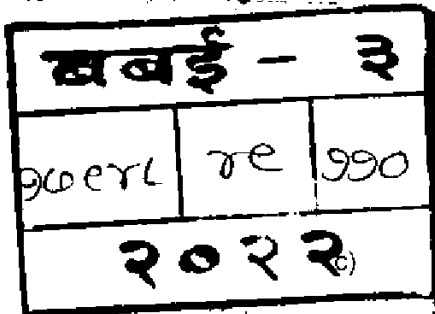 बबई - ३
१७९४८ ४९ ११०
२०२२ c)